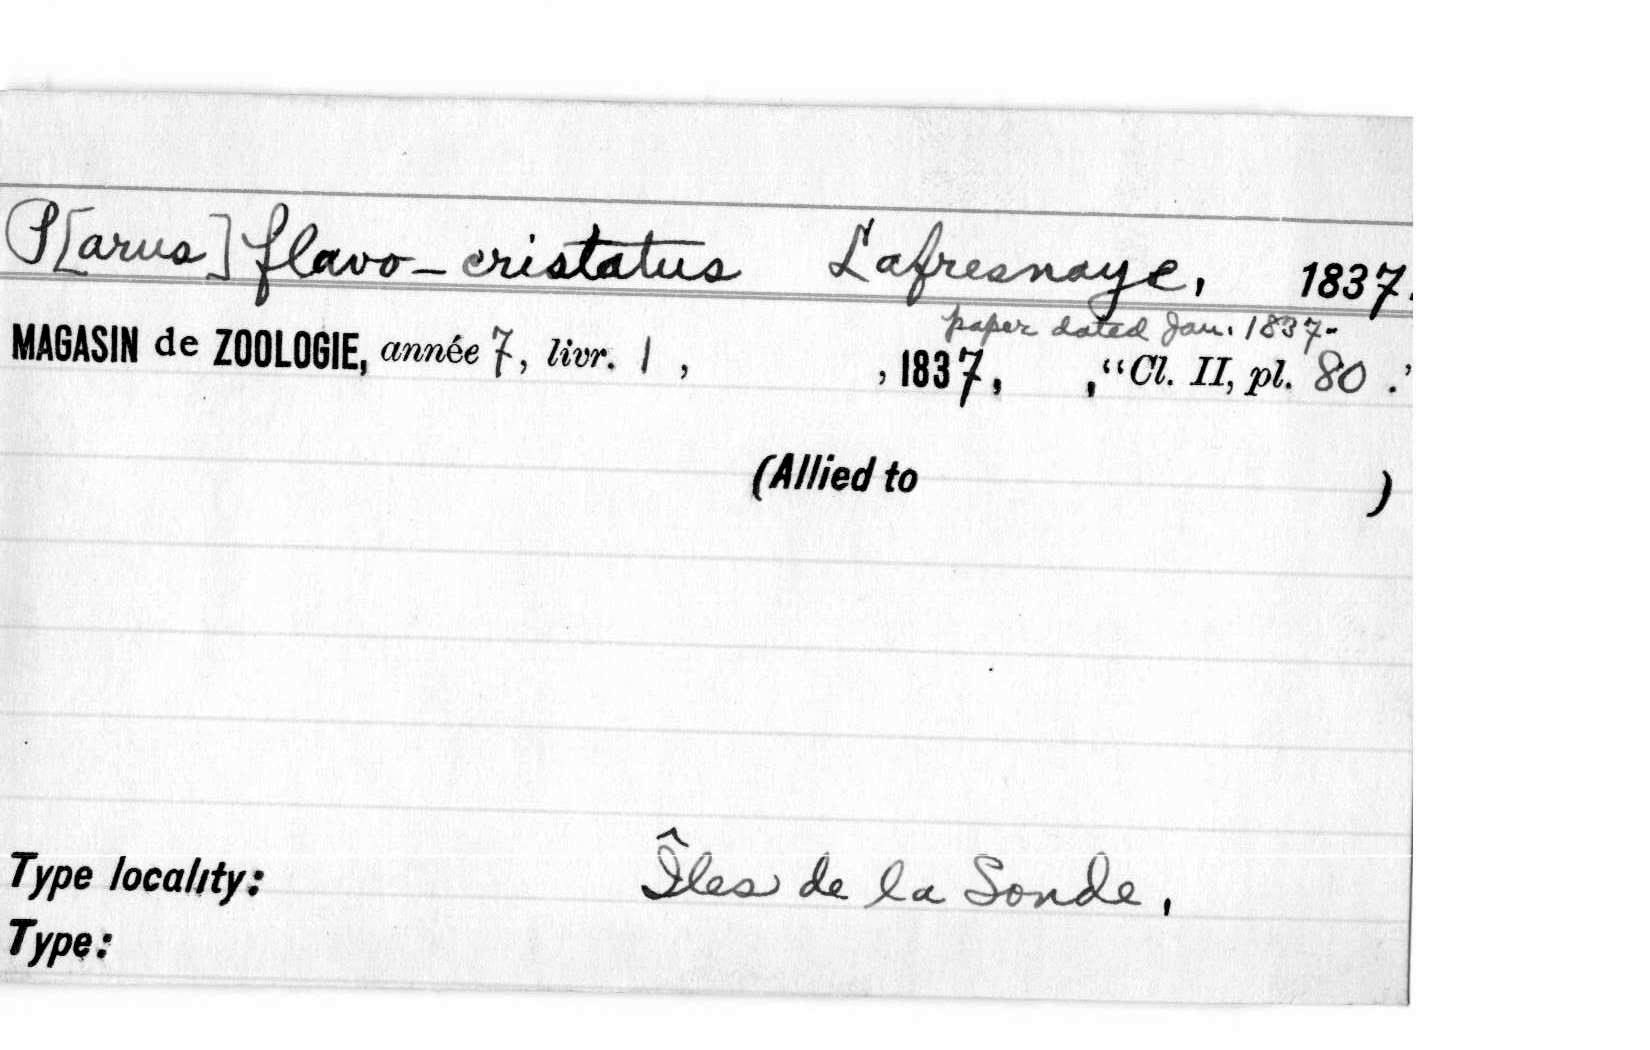 P[arus] flavo-cristatus Lafresnaye, 1837.
paper dated Jan. 1837-
MAGASIN de ZOOLOGIE, année 7, livr. 1 , , 1837, , "Cl. II, pl. 80 .'
(Allied to )
Type locality: Îles de la Sonde,
Type: